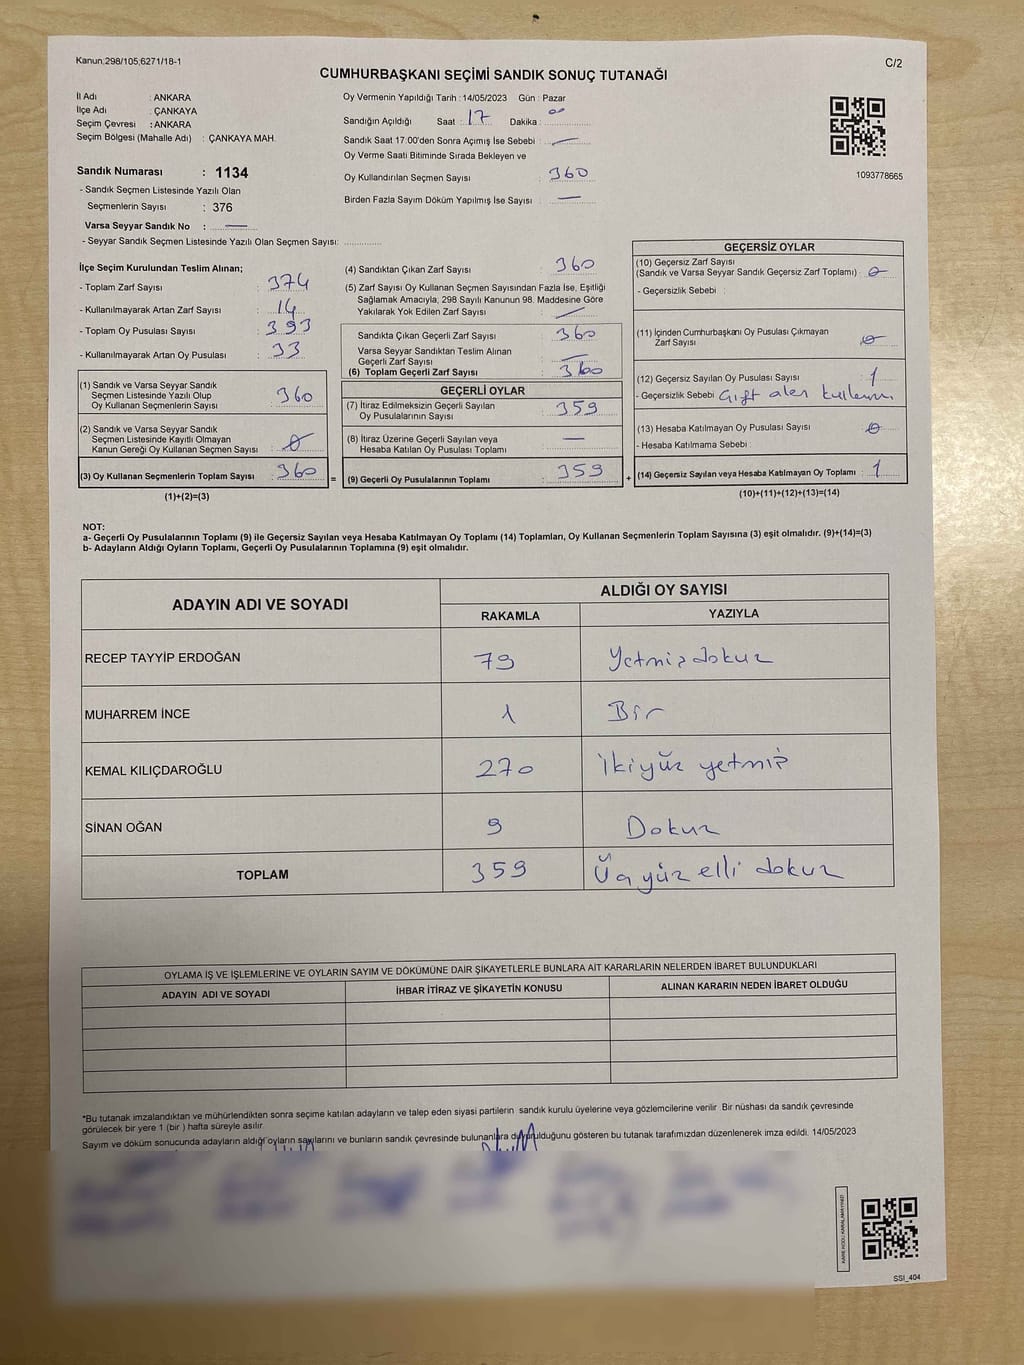 Kanun:298/105;6271/18-1
C/2
CUMHURBAŞKANI SEÇİMİ SANDIK SONUÇ TUTANAĞI
İl Adı : ANKARA
İlçe Adı : ÇANKAYA
Seçim Çevresi : ANKARA
Seçim Bölgesi (Mahalle Adı) : ÇANKAYA MAH.
Sandık Numarası : 1134
- Sandık Seçmen Listesinde Yazılı Olan
Seçmenlerin Sayısı : 376
Varsa Seyyar Sandık No : —
- Seyyar Sandık Seçmen Listesinde Yazılı Olan Seçmen Sayısı: ..............
Oy Vermenin Yapıldığı Tarih : 14/05/2023 Gün : Pazar
Sandığın Açıldığı Saat : 17 Dakika : 00
Sandık Saat 17:00'den Sonra Açımış İse Sebebi : —
Oy Verme Saati Bitiminde Sırada Bekleyen ve
Oy Kullandırılan Seçmen Sayısı : 360
Birden Fazla Sayım Döküm Yapılmış İse Sayısı : —
1093778665
İlçe Seçim Kurulundan Teslim Alınan;
- Toplam Zarf Sayısı : 374
- Kullanılmayarak Artan Zarf Sayısı : 14
- Toplam Oy Pusulası Sayısı : 393
- Kullanılmayarak Artan Oy Pusulası : 33
(1) Sandık ve Varsa Seyyar Sandık
Seçmen Listesinde Yazılı Olup
Oy Kullanan Seçmenlerin Sayısı : 360
(2) Sandık ve Varsa Seyyar Sandık
Seçmen Listesinde Kayıtlı Olmayan
Kanun Gereği Oy Kullanan Seçmen Sayısı : 0
(3) Oy Kullanan Seçmenlerin Toplam Sayısı : 360
(1)+(2)=(3)
=
(4) Sandıktan Çıkan Zarf Sayısı : 360
(5) Zarf Sayısı Oy Kullanan Seçmen Sayısından Fazla İse, Eşitliği
Sağlamak Amacıyla, 298 Sayılı Kanunun 98. Maddesine Göre
Yakılarak Yok Edilen Zarf Sayısı : —
Sandıkta Çıkan Geçerli Zarf Sayısı : 360
Varsa Seyyar Sandıktan Teslim Alınan
Geçerli Zarf Sayısı : —
(6) Toplam Geçerli Zarf Sayısı : 360
GEÇERLİ OYLAR
(7) İtiraz Edilmeksizin Geçerli Sayılan
Oy Pusulalarının Sayısı : 359
(8) İtiraz Üzerine Geçerli Sayılan veya
Hesaba Katılan Oy Pusulası Toplamı : —
(9) Geçerli Oy Pusulalarının Toplamı : 359
+
GEÇERSİZ OYLAR
(10) Geçersiz Zarf Sayısı
(Sandık ve Varsa Seyyar Sandık Geçersiz Zarf Toplamı) : 0
- Geçersizlik Sebebi :
(11) İçinden Cumhurbaşkanı Oy Pusulası Çıkmayan
Zarf Sayısı : 0
(12) Geçersiz Sayılan Oy Pusulası Sayısı : 1
- Geçersizlik Sebebi : Çift alan kullanım
(13) Hesaba Katılmayan Oy Pusulası Sayısı : 0
- Hesaba Katılmama Sebebi :
(14) Geçersiz Sayılan veya Hesaba Katılmayan Oy Toplamı : 1
(10)+(11)+(12)+(13)=(14)
NOT:
a- Geçerli Oy Pusulalarının Toplamı (9) ile Geçersiz Sayılan veya Hesaba Katılmayan Oy Toplamı (14) Toplamları, Oy Kullanan Seçmenlerin Toplam Sayısına (3) eşit olmalıdır. (9)+(14)=(3)
b- Adayların Aldığı Oyların Toplamı, Geçerli Oy Pusulalarının Toplamına (9) eşit olmalıdır.
ADAYIN ADI VE SOYADI ALDIĞI OY SAYISI
RAKAMLA YAZIYLA
RECEP TAYYİP ERDOĞAN 79 Yetmiş dokuz
MUHARREM İNCE 1 Bir
KEMAL KILIÇDAROĞLU 270 İkiyüz yetmiş
SİNAN OĞAN 9 Dokuz
TOPLAM 359 Üçyüz elli dokuz
OYLAMA İŞ VE İŞLEMLERİNE VE OYLARIN SAYIM VE DÖKÜMÜNE DAİR ŞİKAYETLERLE BUNLARA AİT KARARLARIN NELERDEN İBARET BULUNDUKLARI
ADAYIN ADI VE SOYADI İHBAR İTİRAZ VE ŞİKAYETİN KONUSU ALINAN KARARIN NEDEN İBARET OLDUĞU
*Bu tutanak imzalandıktan ve mühürlendikten sonra seçime katılan adayların ve talep eden siyasi partilerin sandık kurulu üyelerine veya gözlemcilerine verilir. Bir nüshası da sandık çevresinde
görülecek bir yere 1 (bir ) hafta süreyle asılır.
Sayım ve döküm sonucunda adayların aldığı oyların sayılarını ve bunların sandık çevresinde bulunanlara duyurulduğunu gösteren bu tutanak tarafımızdan düzenlenerek imza edildi. 14/05/2023
KARE KODU KARALAMAYINIZ!
SSI_404